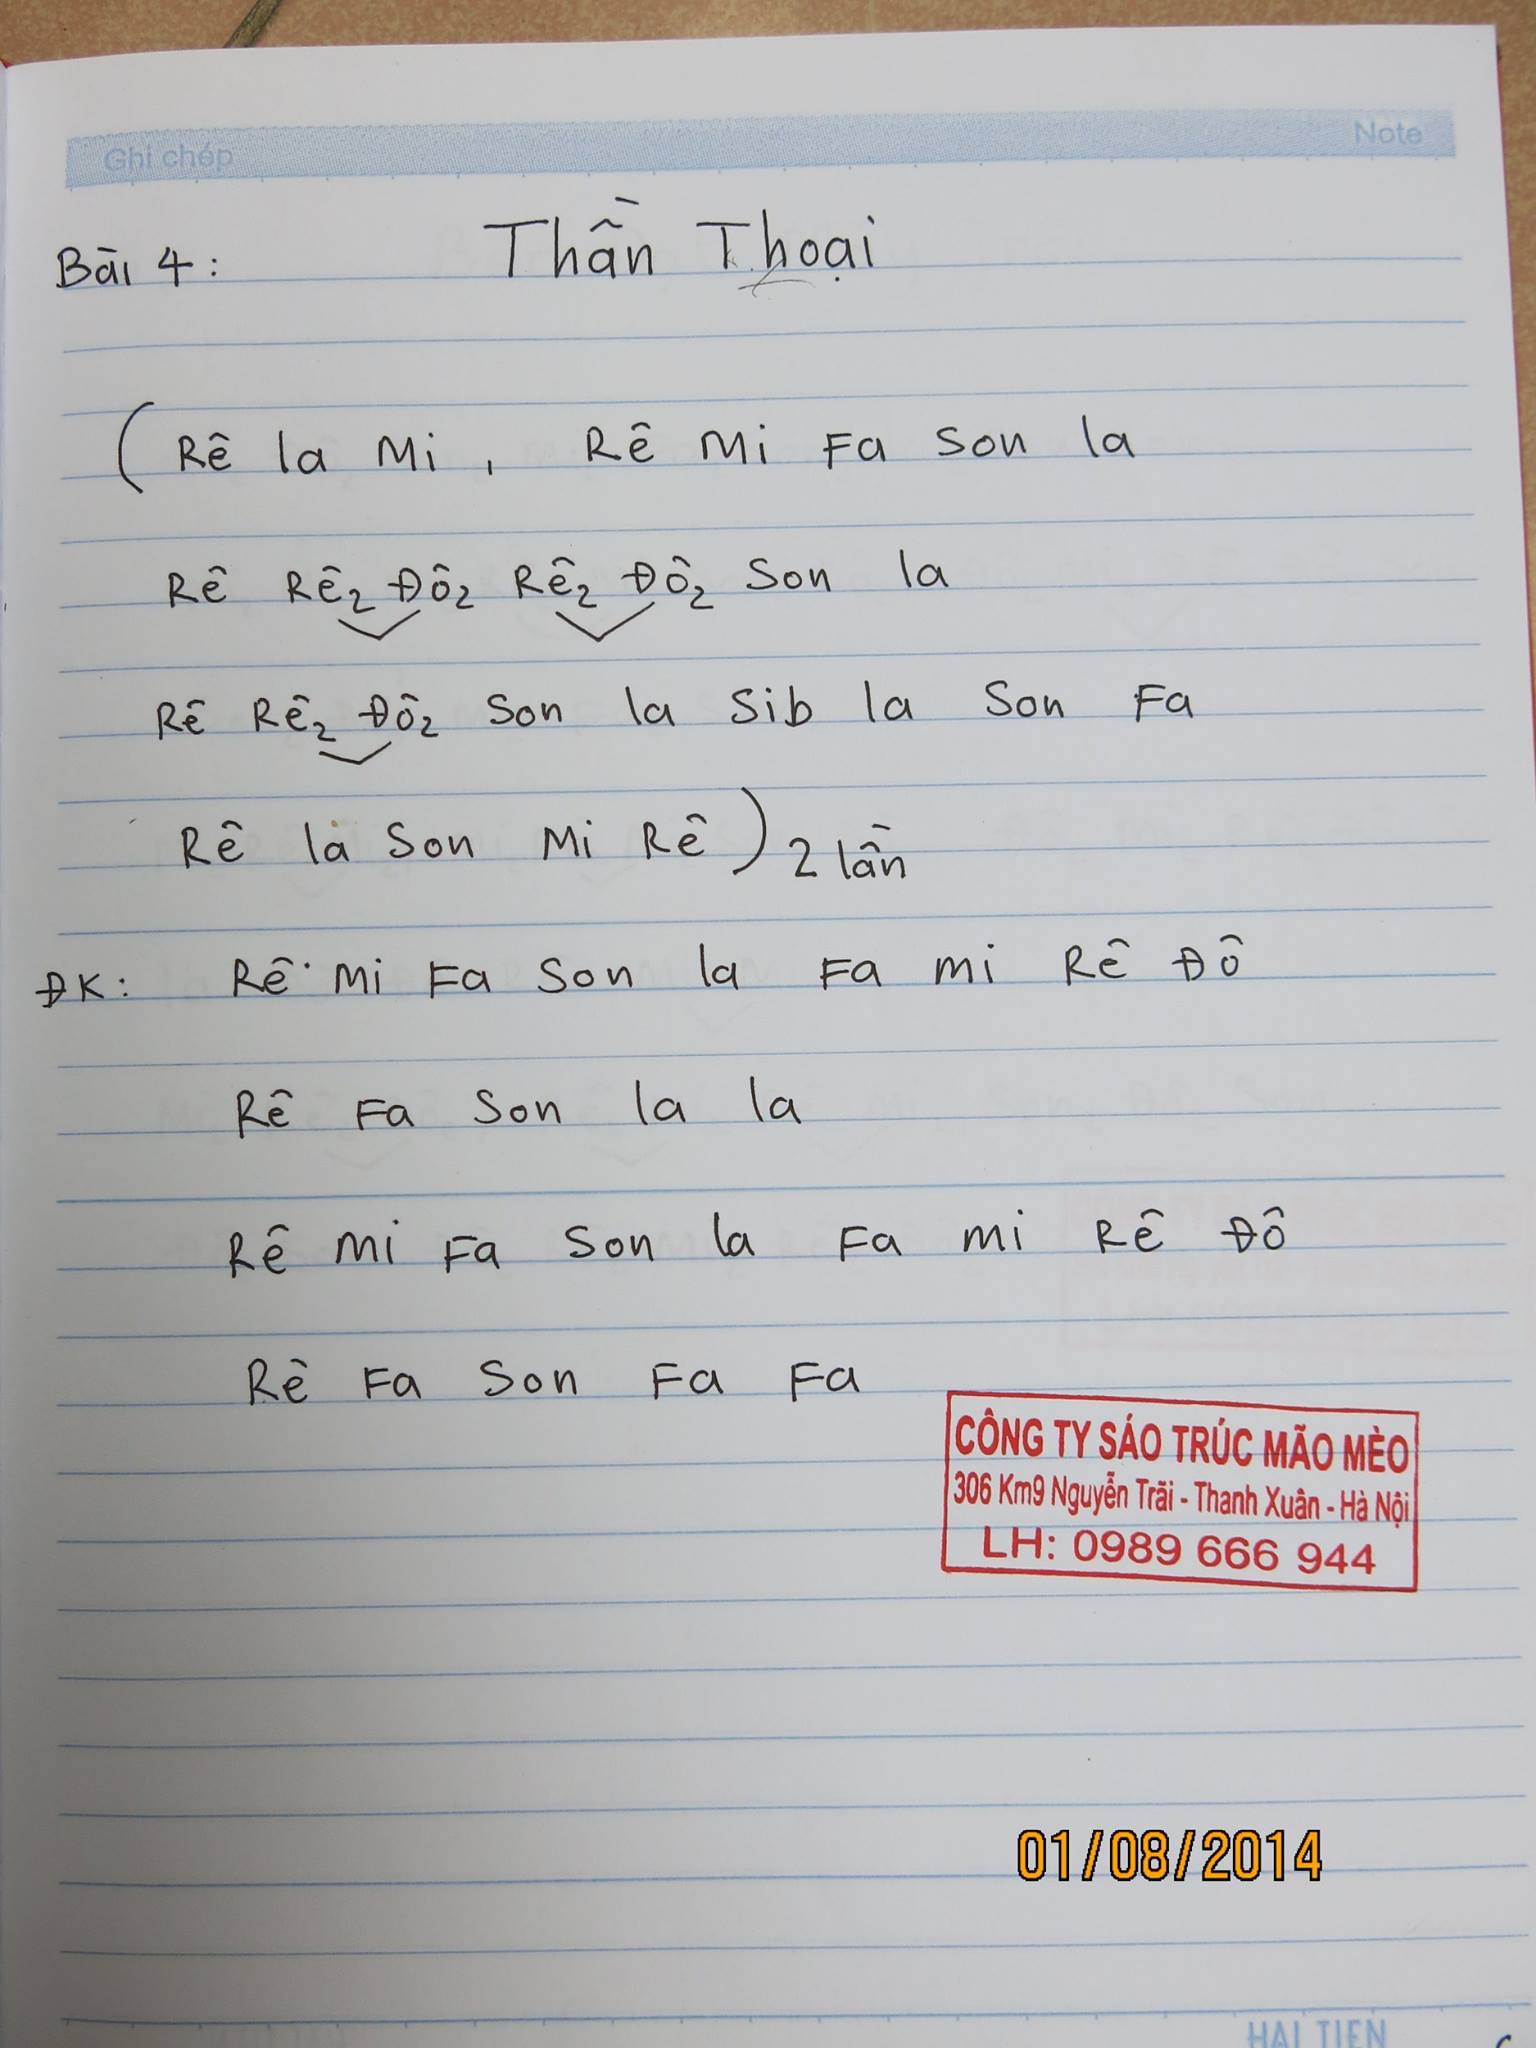 Ghi chép Note
Bài 4: Thần Thoại
(Rê la Mi, Rê Mi Fa Son la
Rê Rê2 Đô2 Rê2 Đô2 Son la
Rê Rê2 Đô2 Son la Sib la Son Fa
Rê la Son Mi Rê) 2 lần
ĐK: Rê Mi Fa Son la Fa mi Rê Đô
Rê Fa Son la la
Rê mi Fa Son la Fa mi Rê Đô
Rê Fa Son Fa Fa
CÔNG TY SÁO TRÚC MÃO MÈO
306 Km9 Nguyễn Trãi - Thanh Xuân - Hà Nội
LH: 0989 666 944
01/08/2014
HẢI TIẾN